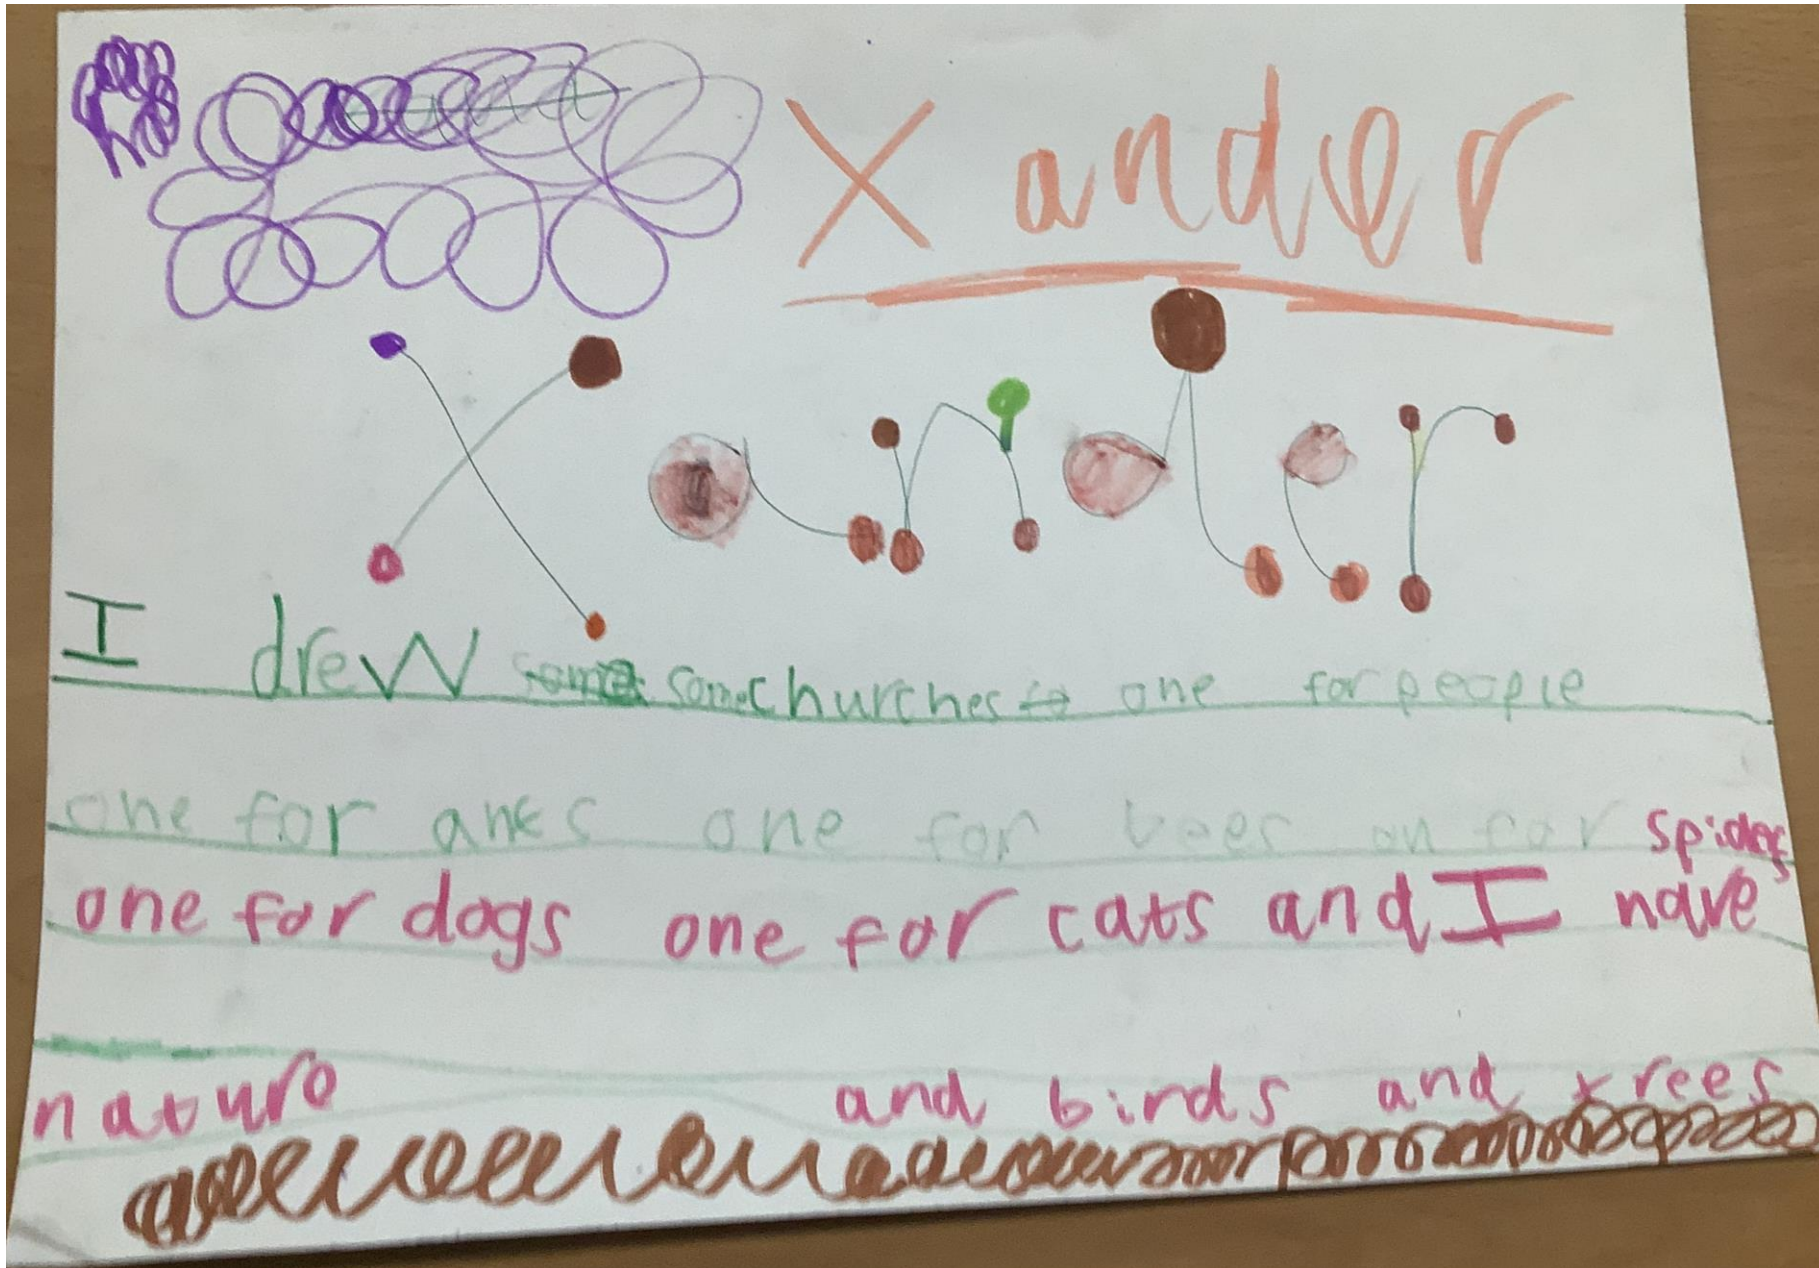 Xander
Xander
I drew some some churches to one for people
one for ants one for bees on for spiders
one for dogs one for cats and I have
nature and birds and trees